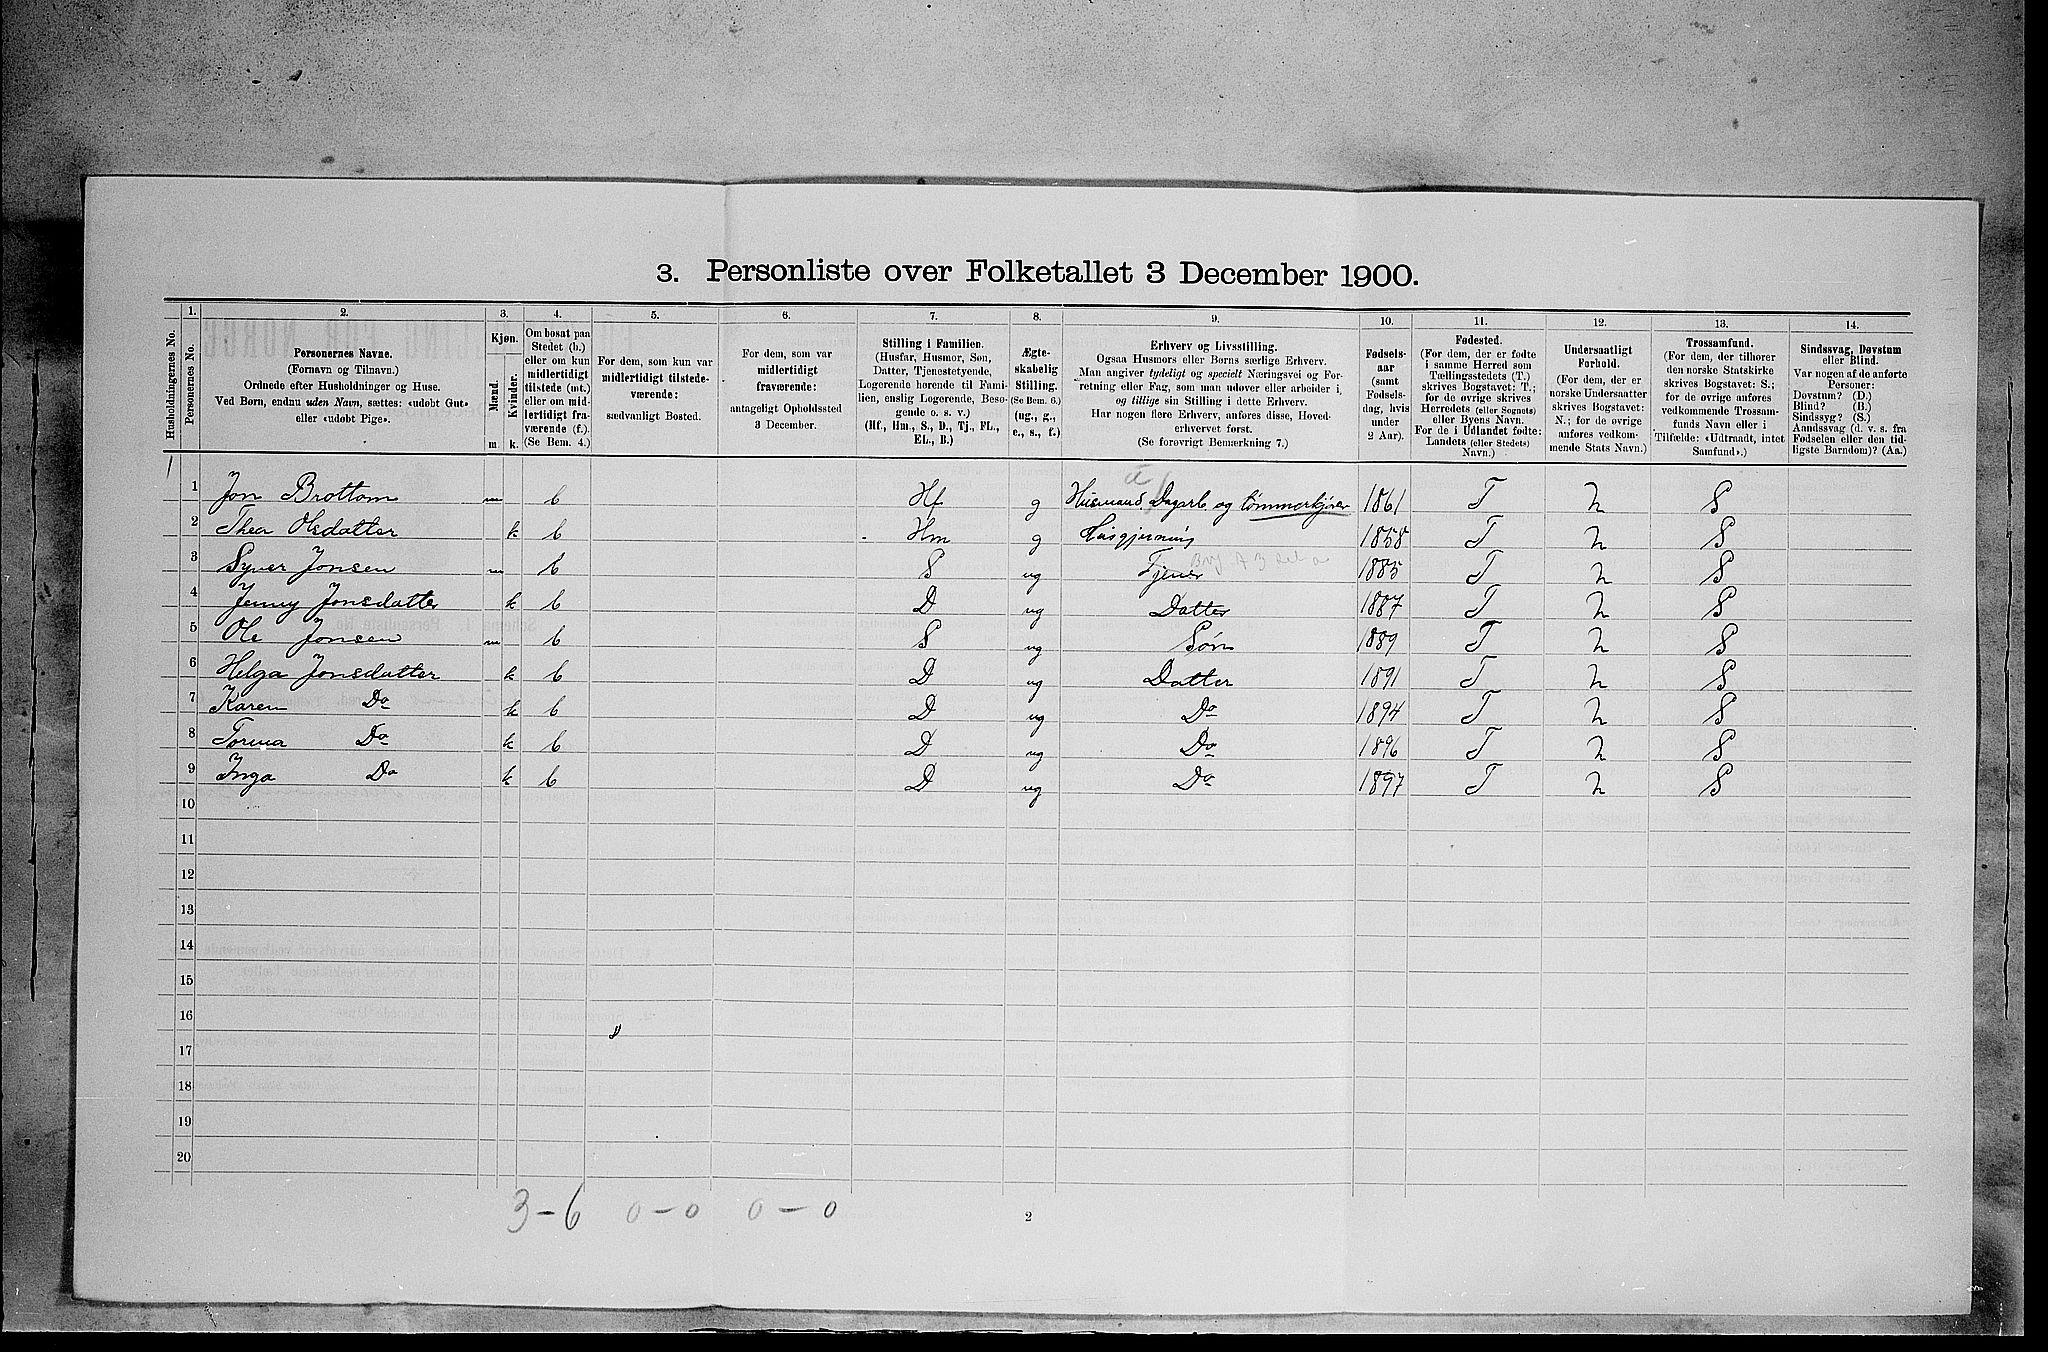 3. Personliste over Folketallet 3 December 1900.
1. 2. 3. 4. 5. 6. 7. 8. 9. 10. 11. 12. 13. 14.
Husholdningernes No.
Personernes No.
Personernes Navne.
(Fornavn og Tilnavn.)
Ordnede efter Husholdninger og Huse.
Ved Børn, endnu uden Navn, sættes: «udøbt Gut»
eller «udøbt Pige».
Kjøn.
Mænd.
Kvinder.
m. k.
Om bosat paa
Stedet (b.)
eller om kun
midlertidigt
tilstede (mt.)
eller om mid-
lertidigt fra-
værende (f.).
(Se Bem. 4.)
For dem, som kun var
midlertidigt tilstede-
værende:
sædvanligt Bosted.
For dem, som var
midlertidigt
fraværende:
antageligt Opholdssted
3 December.
Stilling i Familien.
(Husfar, Husmor, Søn,
Datter, Tjenestetyende,
Logerende hørende til Fami-
lien, enslig Logerende, Besø-
gende o. s. v.)
(Hf., Hm., S., D., Tj., FL.,
EL., B.)
Ægte-
skabelig
Stilling.
(Se Bem. 6.)
(ug., g.,
e., s., f.)
Erhverv og Livsstilling.
Ogsaa Husmors eller Børns særlige Erhverv.
Man angiver tydeligt og specielt Næringsvei og For-
retning eller Fag, som man udøver eller arbeider i,
og tillige sin Stilling i dette Erhverv.
Har nogen flere Erhverv, anføres disse, Hoved-
erhvervet først.
(Se forøvrigt Bemærkning 7.)
Fødsels-
aar
(samt
Fødsels-
dag, hvis
under
2 Aar).
Fødested.
(For dem, der er fødte
i samme Herred som
Tællingsstedets (T.)
skrives Bogstavet: T.;
for de øvrige skrives
Herredets (eller Sognets)
eller Byens Navn.
For de i Udlandet fødte:
Landets (eller Stedets)
Navn.)
Undersaatligt
Forhold.
(For dem, der er
norske Undersaatter
skrives Bogstavet:
N.; for de øvrige
anføres vedkom-
mende Stats Navn.)
Trossamfund.
(For dem, der tilhører
den norske Statskirke
skrives Bogstavet: S.;
for de øvrige anføres
vedkommende Trossam-
funds Navn eller i
Tilfælde: «Udtraadt, intet
Samfund».)
Sindssvag, Døvstum
eller Blind.
Var nogen af de anførte
Personer:
Døvstum? (D.)
Blind? (B.)
Sindssyg? (S.)
Aandssvag (d. v. s. fra
Fødselen eller den tid-
ligste Barndom)? (Aa.)
1 1 Jon Brottom m b Hf g Husmand Dagarb og tømmerkjører 1861 T N S
2 Thea Olsdatter k b Hm g Husgjerning 1858 T N S
3 Syver Jonsen m b S ug Tjener 1885 T N S
4 Jenny Jonsdatter k b D ug Datter 1887 T N S
5 Ole Jonsen m b S ug Søn 1889 T N S
6 Helga Jonsdatter k b D ug Datter 1891 T N S
7 Karen Do k b D ug Do 1894 T N S
8 Torma Do k b D ug Do 1896 T N S
9 Inga Do k b D ug Do 1897 T N S
10
11
12
13
14
15
16
17
18
19
20
3-6 0-0 0-0
2